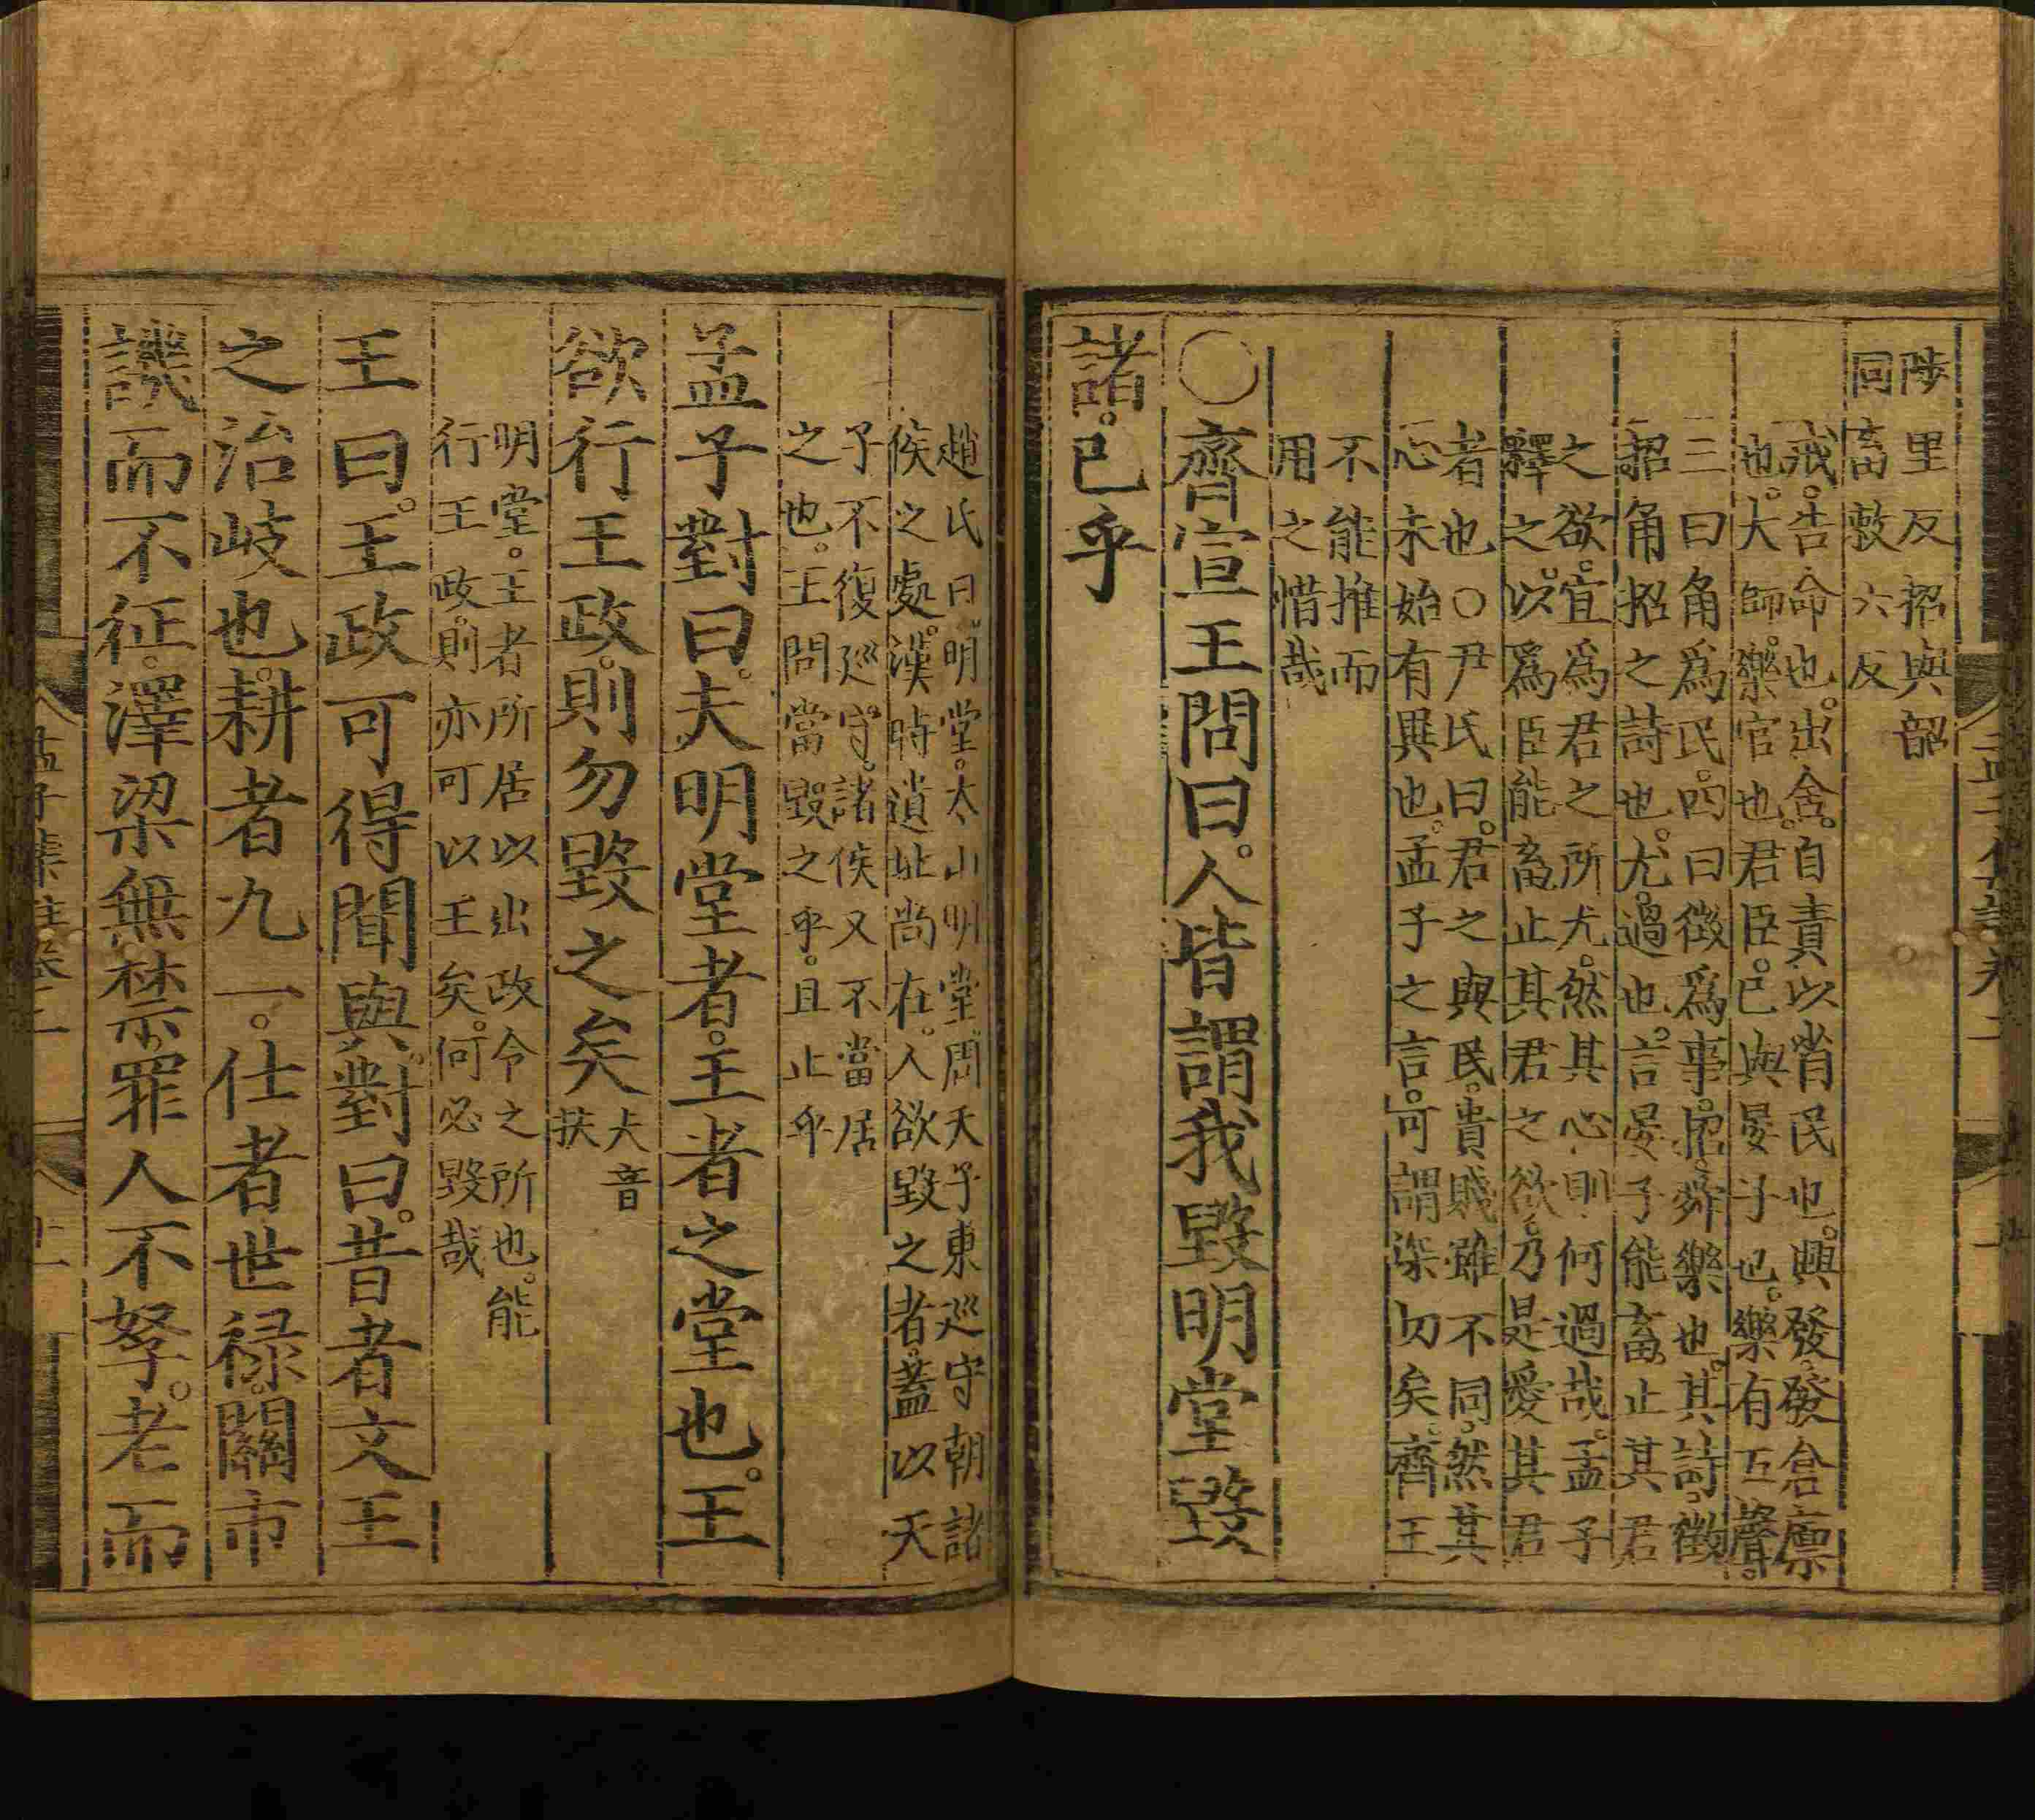 陟里反招與韶
同畜敕六反
戒。告命也。出舍。自責以省民也。興發。發倉廩
也。大師。樂官也。君臣。己與晏子也。樂有五聲。
三曰角爲民。四曰徵爲事。招。舜樂也。其詩。徵
招角招之詩也。尤。過也。言晏子能畜止其君
之欲。宜爲君之所尤。然其心則何過哉。孟子
釋之。以爲臣能畜止其君之欲。乃是愛其君
者也○尹氏曰。君之與民。貴賤雖不同。然其
心未始有異也。孟子之言。可謂深切矣。齊王
不能推而
用之惜哉
○齊宣王問曰。人皆謂我毀明堂毀
諸。已乎
趙氏曰。明堂。太山明堂。周天子東巡守朝諸
侯之處。漢時遺址尚在。人欲毀之者。蓋以天
子不復巡守。諸侯又不當居
之也。王問當毀之乎。且止乎
孟子對曰。夫明堂者。王者之堂也。王
欲行王政。則勿毀之矣 夫音
扶
明堂。王者所居以出政令之所也。能
行王政。則亦可以王矣。何必毀哉
王曰。王政可得聞與。對曰。昔者文王
之治岐也。耕者九一。仕者世祿。關市
譏而不征。澤梁無禁。罪人不孥。老而
孟子集註卷二